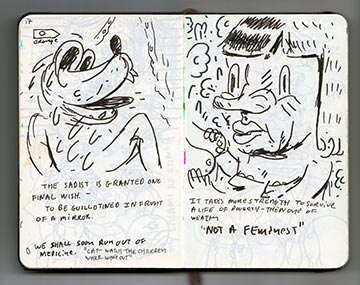 THE SADIST IS GRANTED ONE
FINAL WISH.
TO BE GUILLOTINED IN FRONT
OF A MIRROR.
WE SHALL SOON RUN OUT OF
MEDICINE. "EAT - WATCH THE CHILDREN
IT TAKES MORE STRENGTH TO SURVIVE
A LIFE OF POVERTY - THAN ONE OF
WEALTH
"NOT A FEMINIST"